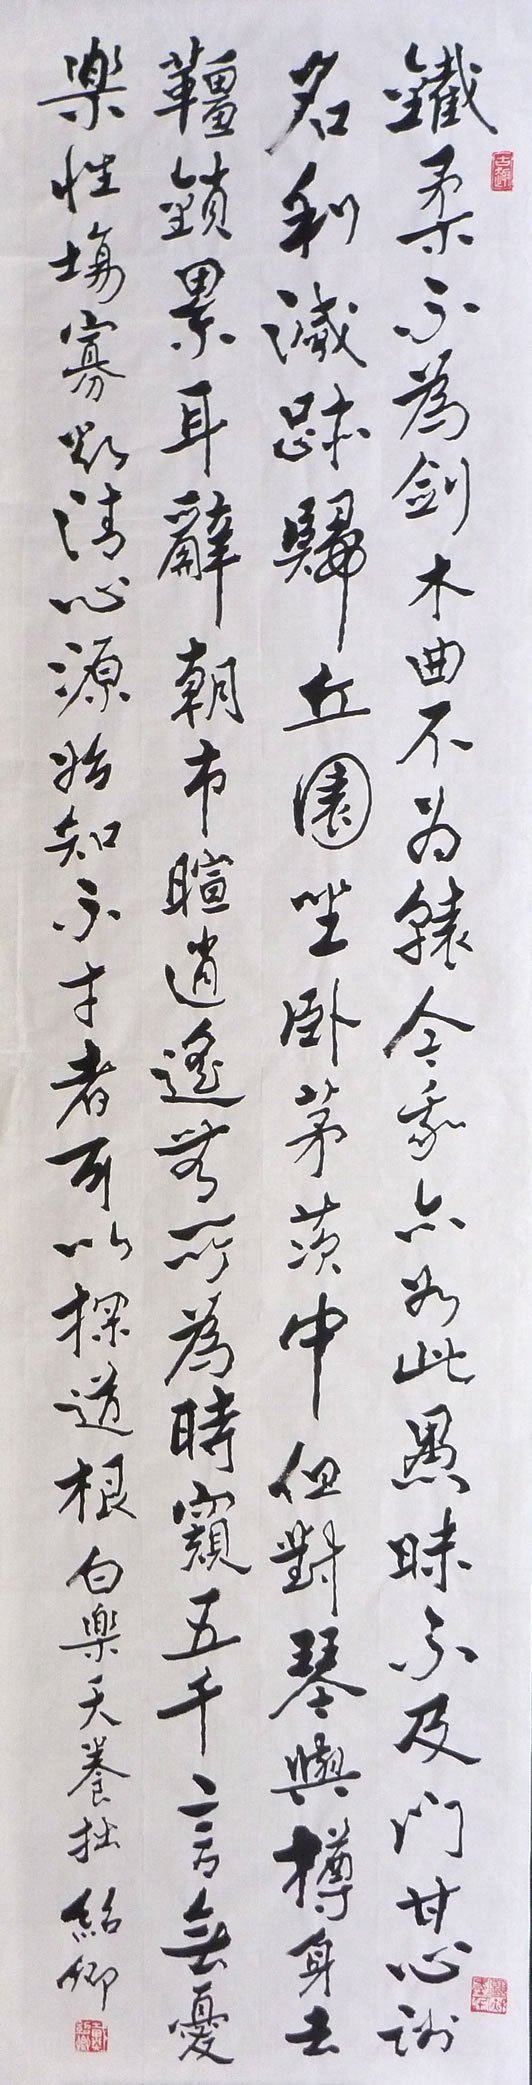 鐵柔不為劍木曲不为轅今我亦如此愚昧不及門甘心謝
名利滅跡歸丘園坐卧茅茨中但對琴與樽身去
韁鎖累耳辭朝市喧逍遙無所為時窺五千言無憂
樂性場寡欲清心源始知不才者可以探道根白樂天養拙紹卿